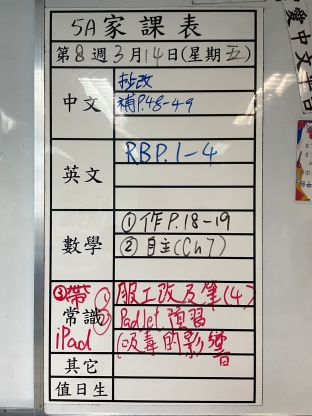 5A 家課表
第8週3月14日(星期五)
中文
抄改
補P.48-49
英文
RB P.1-4
數學
① 作 P.18-19
② 自主(Ch7)
常識
① 服工改及筆(4)
② Padlet 預習
吸毒的影響
③帶
iPad
其它
值日生
愛中文平日